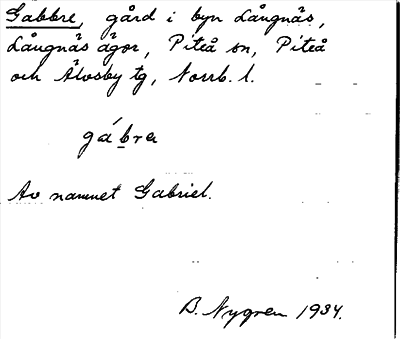 Gabbre, gård i byn Långnäs,
Långnäs ägor, Piteå sn, Piteå
och Älvsby tg, Norrb. l.
gábrɐ
Av namnet Gabriel.
B. Nygren 1934.